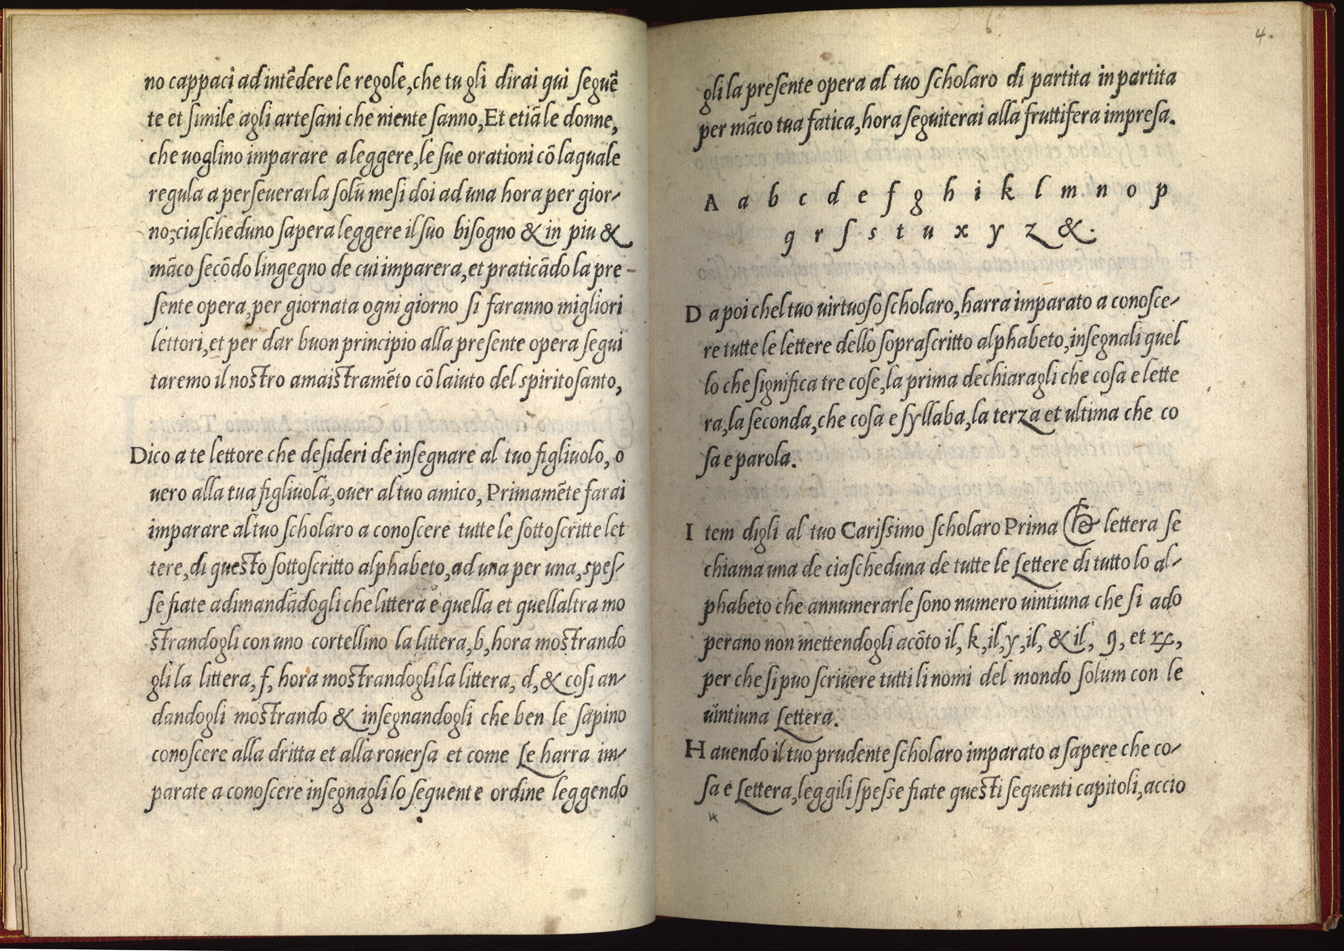 no cappaci ad intēdere le regole, che tu gli dirai qui seguē
te et simile agli artesani che niente sanno, Et etiā le donne,
che uoglino imparare a leggere, le sue orationi cō la quale
regula a perseuerarla solū mesi doi ad una hora per gior-
no, ciascheduno sapera leggere il suo bisogno & in piu &
māco secōdo lingegno de cui imparera, et praticādo la pre-
sente opera, per giornata ogni giorno si faranno migliori
lettori, et per dar buon principio alla presente opera segui
taremo il nostro amaistramēto cō laiuto del spirito santo,
Dico a te lettore che desideri de insegnare al tuo figliuolo, o
uero alla tua figliuola, ouer al tuo amico, Primamēte farai
imparare al tuo scholaro a conoscere tutte le sottoscritte let
tere, di questo sottoscritto alphabeto, ad una per una, spes-
se fiate adimandādogli che littera e quella et quellaltra mo
strandogli con uno cortellino la littera, b, hora mostrando
gli la littera, f, hora mostrandogli la littera, d, & cosi an-
dandogli mostrando & insegnandogli che ben le sapino
conoscere alla dritta et alla rouersa et come Le harra im-
parate a conoscere insegnagli lo sequente ordine leggendo
4.
gli la presente opera al tuo scholaro di partita in partita
per māco tua fatica, hora seguiterai alla fruttifera impresa.
A a b c d e f g h i k l m n o p
q r ſ s t u x y z &.
D a poi chel tuo uirtuoso scholaro, harra imparato a conosce-
re tutte le lettere dello soprascritto alphabeto, insegnali quel
lo che significa tre cose, la prima dechiaragli che cosa e lette
ra, la seconda, che cosa e syllaba, la terza et ultima che co
sa e parola.
I tem digli al tuo Carissimo scholaro Prima che lettera se
chiama una de ciascheduna de tutte le Lettere di tutto lo al-
phabeto che annumerarle sono numero uintiuna che si ado
perano non mettendogli acōto il, k, il, y, il, & il, ꝯ, et ꝝ,
per che si puo scriuere tutti li nomi del mondo solum con le
uintiuna Lettera.
H auendo il tuo prudente scholaro imparato a sapere che co-
sa e Lettera, leggili spesse fiate questi sequenti capitoli, accio